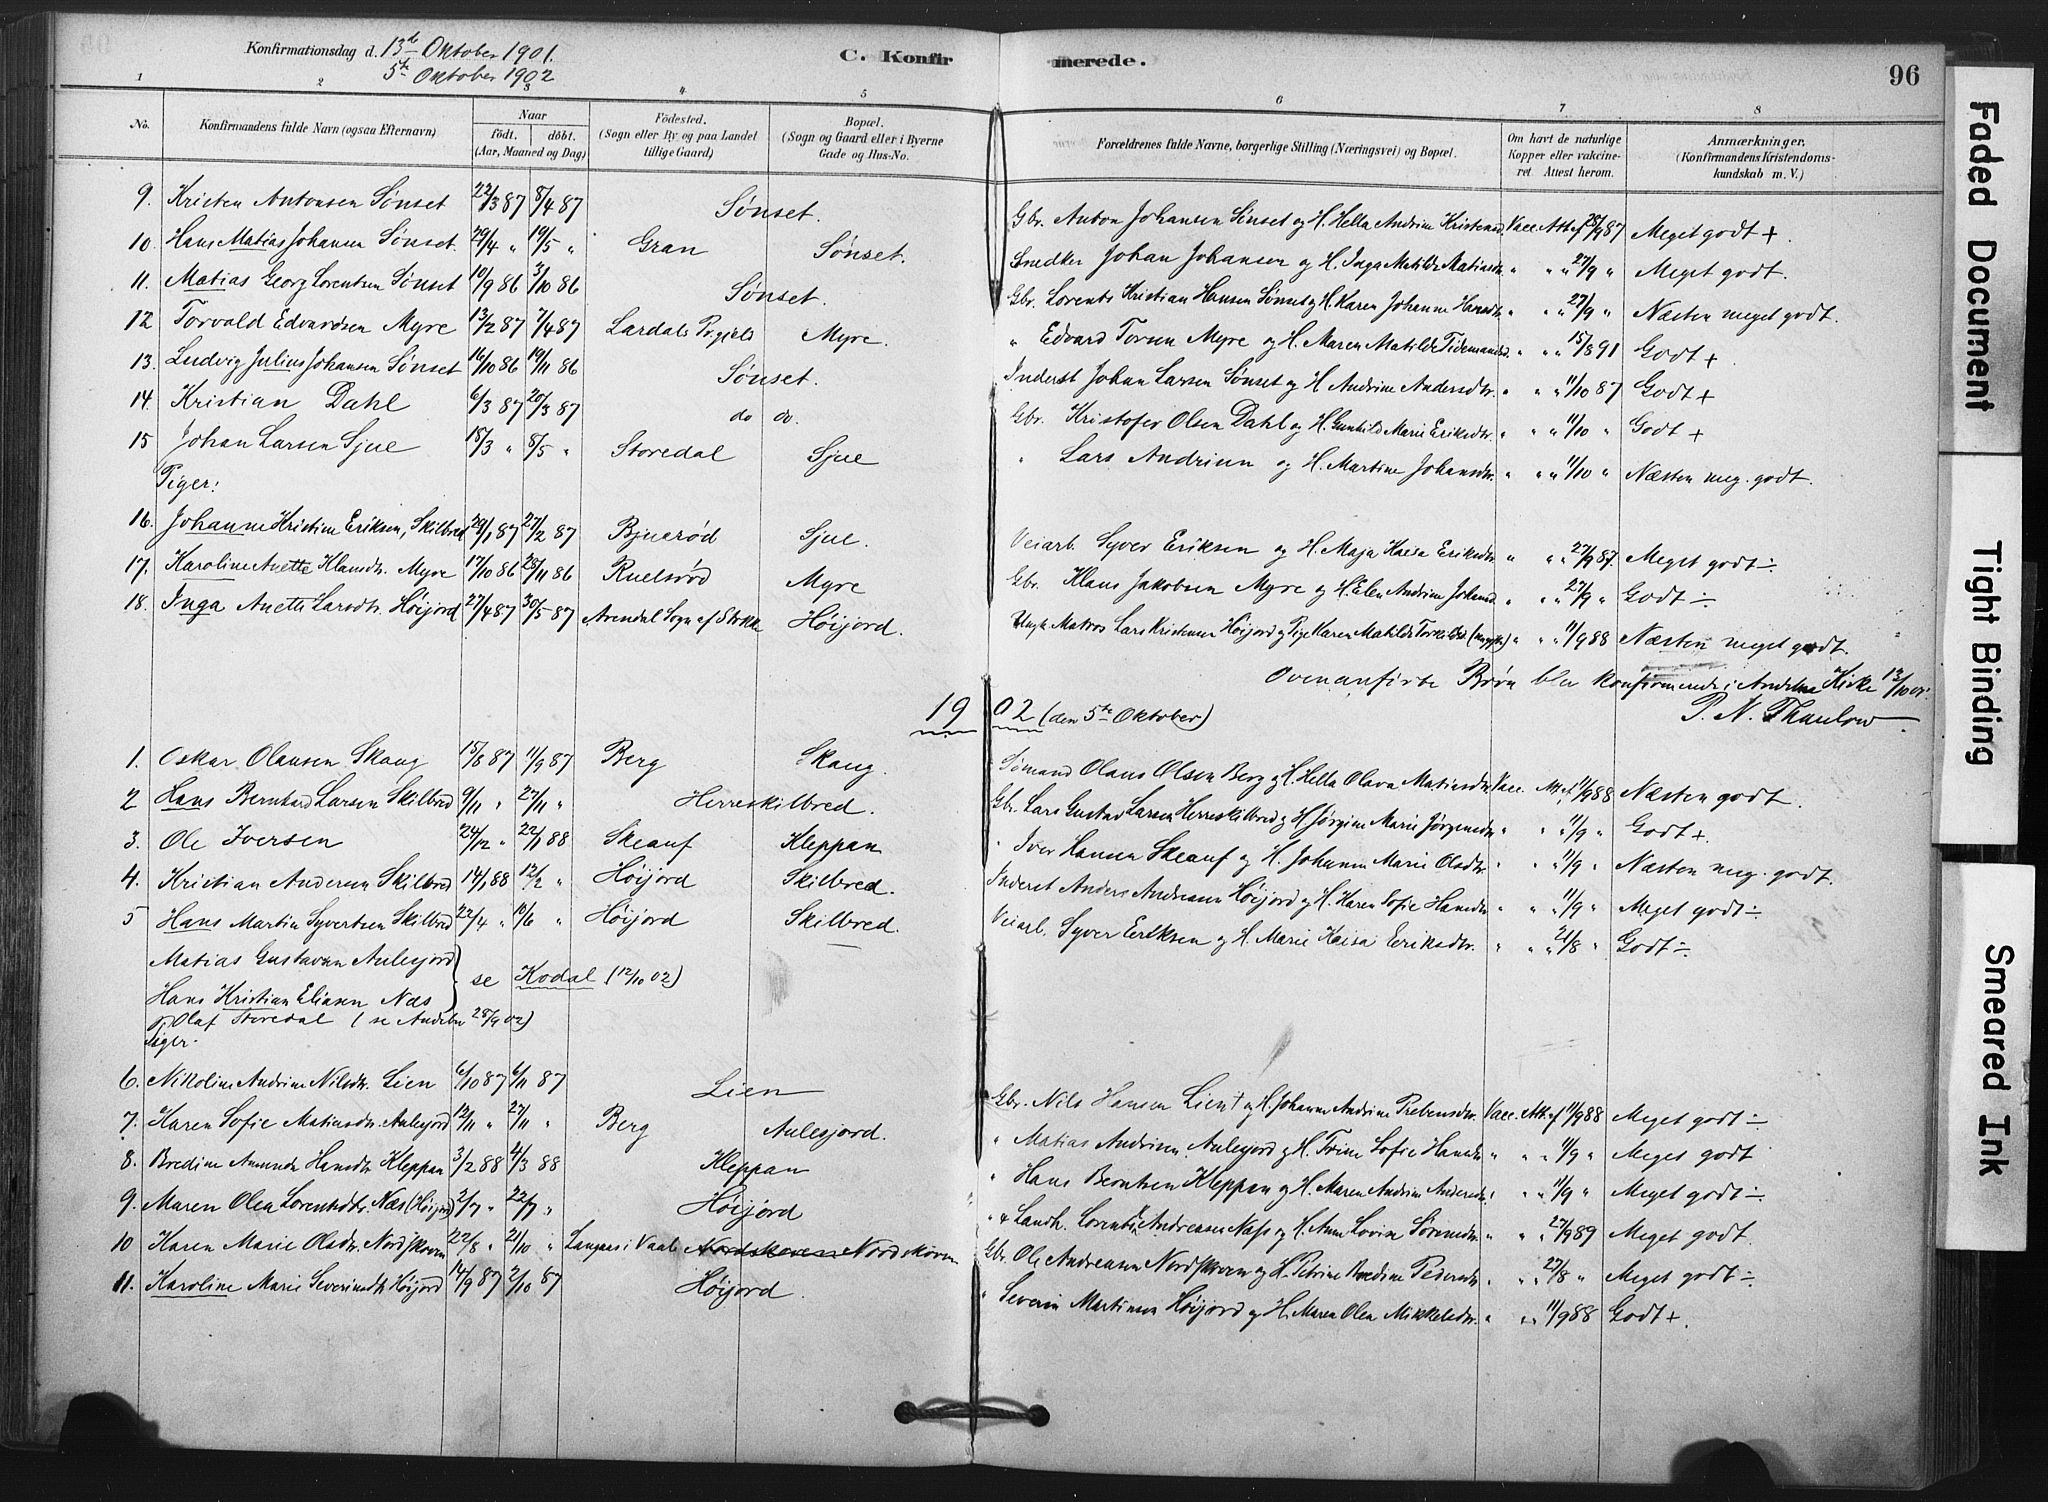 Konfirmationsdag d. 13de Oktober 1901.
5te Oktober 1902
C. Konfirmerede.
96
1 2 3 4 5 6 7 8
No. Konfirmandens fulde Navn (ogsaa Efternavn) Naar födt. döbt. (Aar, Maaned og Dag) Födested. (Sogn eller By og paa Landet tillige Gaard) Bopæl. (Sogn og Gaard eller i Byerne Gade og Hus-No. Forældrenes fulde Navne, borgerlige Stilling (Næringsvei) og Bopæl. Om havt de naturlige Kopper eller vakcineret Attest herom. Anmærkninger. (Konfirmandens Kristendomskundskab m. V.)
9. Kristen Antonsen Sønset 22/3 87 8/4 87 Sønset. Gbr. Anton Johansen Sønset og H. Hella Andrine Kristensd. Vacc. Att. af 28/9 87 Meget godt +
10. Hans Matias Johansen Sønset. 29/4 " 19/5 " Gran Sønset. Snedker Johan Johansen og H. Inga Matilde Matiasdtr. " " 27/9 " Meget godt.
11. Matias Georg Lorentsen Sønset 10/9 86 3/10 86 Sønset. Gbr. Lorents Kristian Hansen Sønset og H. Karen Johanne Hansdtr. " " 27/9 " Næsten meget godt.
12 Torvald Edvardsen Myre 13/2 87 7/4 87 Lardals Prgjeld Myre. " Edvard Torsen Myre og H. Maren Matilde Tidemandsd. " " 15/8 91 Godt +
13. Ludvig Julius Johansen Sønset 16/10 86 19/11 86 Sønset. Inderst Johan Larsen Sønset og H. Andrine Andersdtr. " " 11/10 87 Godt +
14. Kristian Dahl 6/3 87 20/3 87 do do. Gbr. Kristofer Olsen Dahl og H. Gunhild Marie Eriksdtr. " " 11/10 " Godt +
15 Johan Larsen Sjue 18/3 " 8/5 " Storedal Sjue " Lars Andersen og H. Martine Johansdtr. " " 11/10 " Næsten meg. godt.
Piger:
16. Johanne Kristine Eriksen, Skilbred 29/1 87 27/2 87 Bjuerød Sjue. Veiarb. Syver Eriksen og H. Maja Kaisa Eriksdtr. " " 27/9 87. Meget godt ÷
17. Karoline Anette Klausdtr. Myre 17/10 86 28/11 86 Ruelsrød Myre Gbr. Klaus Jakobsen Myre og H. Elen Andrine Johansd. " " 27/9 " Godt ÷
18. Inga Anette Larsdtr. Høijord 27/4 87 30/5 87 Arendal Sogn af Stokke Høijord. Ungk. Matros Lars Kristensen Høijord og Pige Karen Matilde Torkildsd. " " 11/9 88 Næsten meget godt.
Ovenanførte Børn blev konfirmerede i Andebu Kirke 13/10 01.
P. N. Thaulow
1902 (den 5te Oktober)
1. Oskar Olausen Skaug 15/8 87 11/9 87 Berg Skaug. Sømand Olaus Olsen Berg og H. Hella Olava Matiasdtr. Vacc. Att. af 11/9 88 Næsten godt.
2 Hans Bernhard Larsen Skilbred 9/11 " 27/11 " Herreskilbred. Gbr. Lars Gustav Larsen Herreskilbred og H. Jørgine Marie Jørgensdtr. " " 11/9 " Godt +
3. Ole Iversen 24/12 " 22/1 88 Skeauf Kleppan " Iver Hansen Skeauf og H. Johanne Marie Olsdtr. " " 11/9 " Næsten meg. godt.
4. Kristian Andersen Skilbred 14/1 88 12/2 " Høijord Skilbred. Inderst Anders Andersen Høijord og H. Karen Sofie Hansdtr. " " 11/9 " Meget godt ÷
5 Hans Martin Syvertsen Skilbred 22/4 " 10/6 " Høijord Skilbred. Veiarb. Syver Eriksen og H. Marie Kaisa Eriksdtr. " " 21/8 " Godt ÷
Matias Gustavsen Aulesjord
Hans Kristian Eliasen Næs } se Kodal (12/10 02)
Olaf Storedal (se Andebu 28/9 02)
Piger.
6. Nikoline Andrine Nilsdtr. Lien 6/10 87 6/11 87 Lien Gbr. Nils Hansen Lien † og H. Johanne Andrine Prebensdtr. Vacc. Att. af 11/9 88 Meget godt ÷
7. Karen Sofie Matiasdtr. Aulesjord 12/11 " 27/11 " Berg Aulesjord. " Matias Andersen Aulesjord og H. Trine Sofie Hansdtr. " " 11/9 " Meget godt
8. Bredine Amunda Hansdtr. Kleppan 3/2 88 4/3 88 Kleppan " Hans Berntsen Kleppan og H. Maren Andrine Andersdtr. " " 11/9 " Meget godt ÷
9. Maren Olea Lorentsdtr. Næs (Høijord) 2/7 " 22/7 " Høijord " & Landh. Lorents Andreassen Næss og H. Anne Lovise Sørensdtr. " " 27/9 89 Meget godt
10 Karen Marie Olsdtr. Nordskoven 22/8 " 21/10 " Langaas i Vaale Nordskoven Nordskoven Gbr. Ole Andreassen Nordskoven og H. Petrine Bredine Pedersdtr. " " 27/8 " Meget godt ÷
11. Karoline Marie Severinsdtr. Høijord 14/9 87 2/10 87 Høijord. " Severin Martinsen Høijord og H. Maren Olea Mikkelsdtr. " " 11/9 88 Godt +.
Faded Document
Tight Binding
Smeared Ink